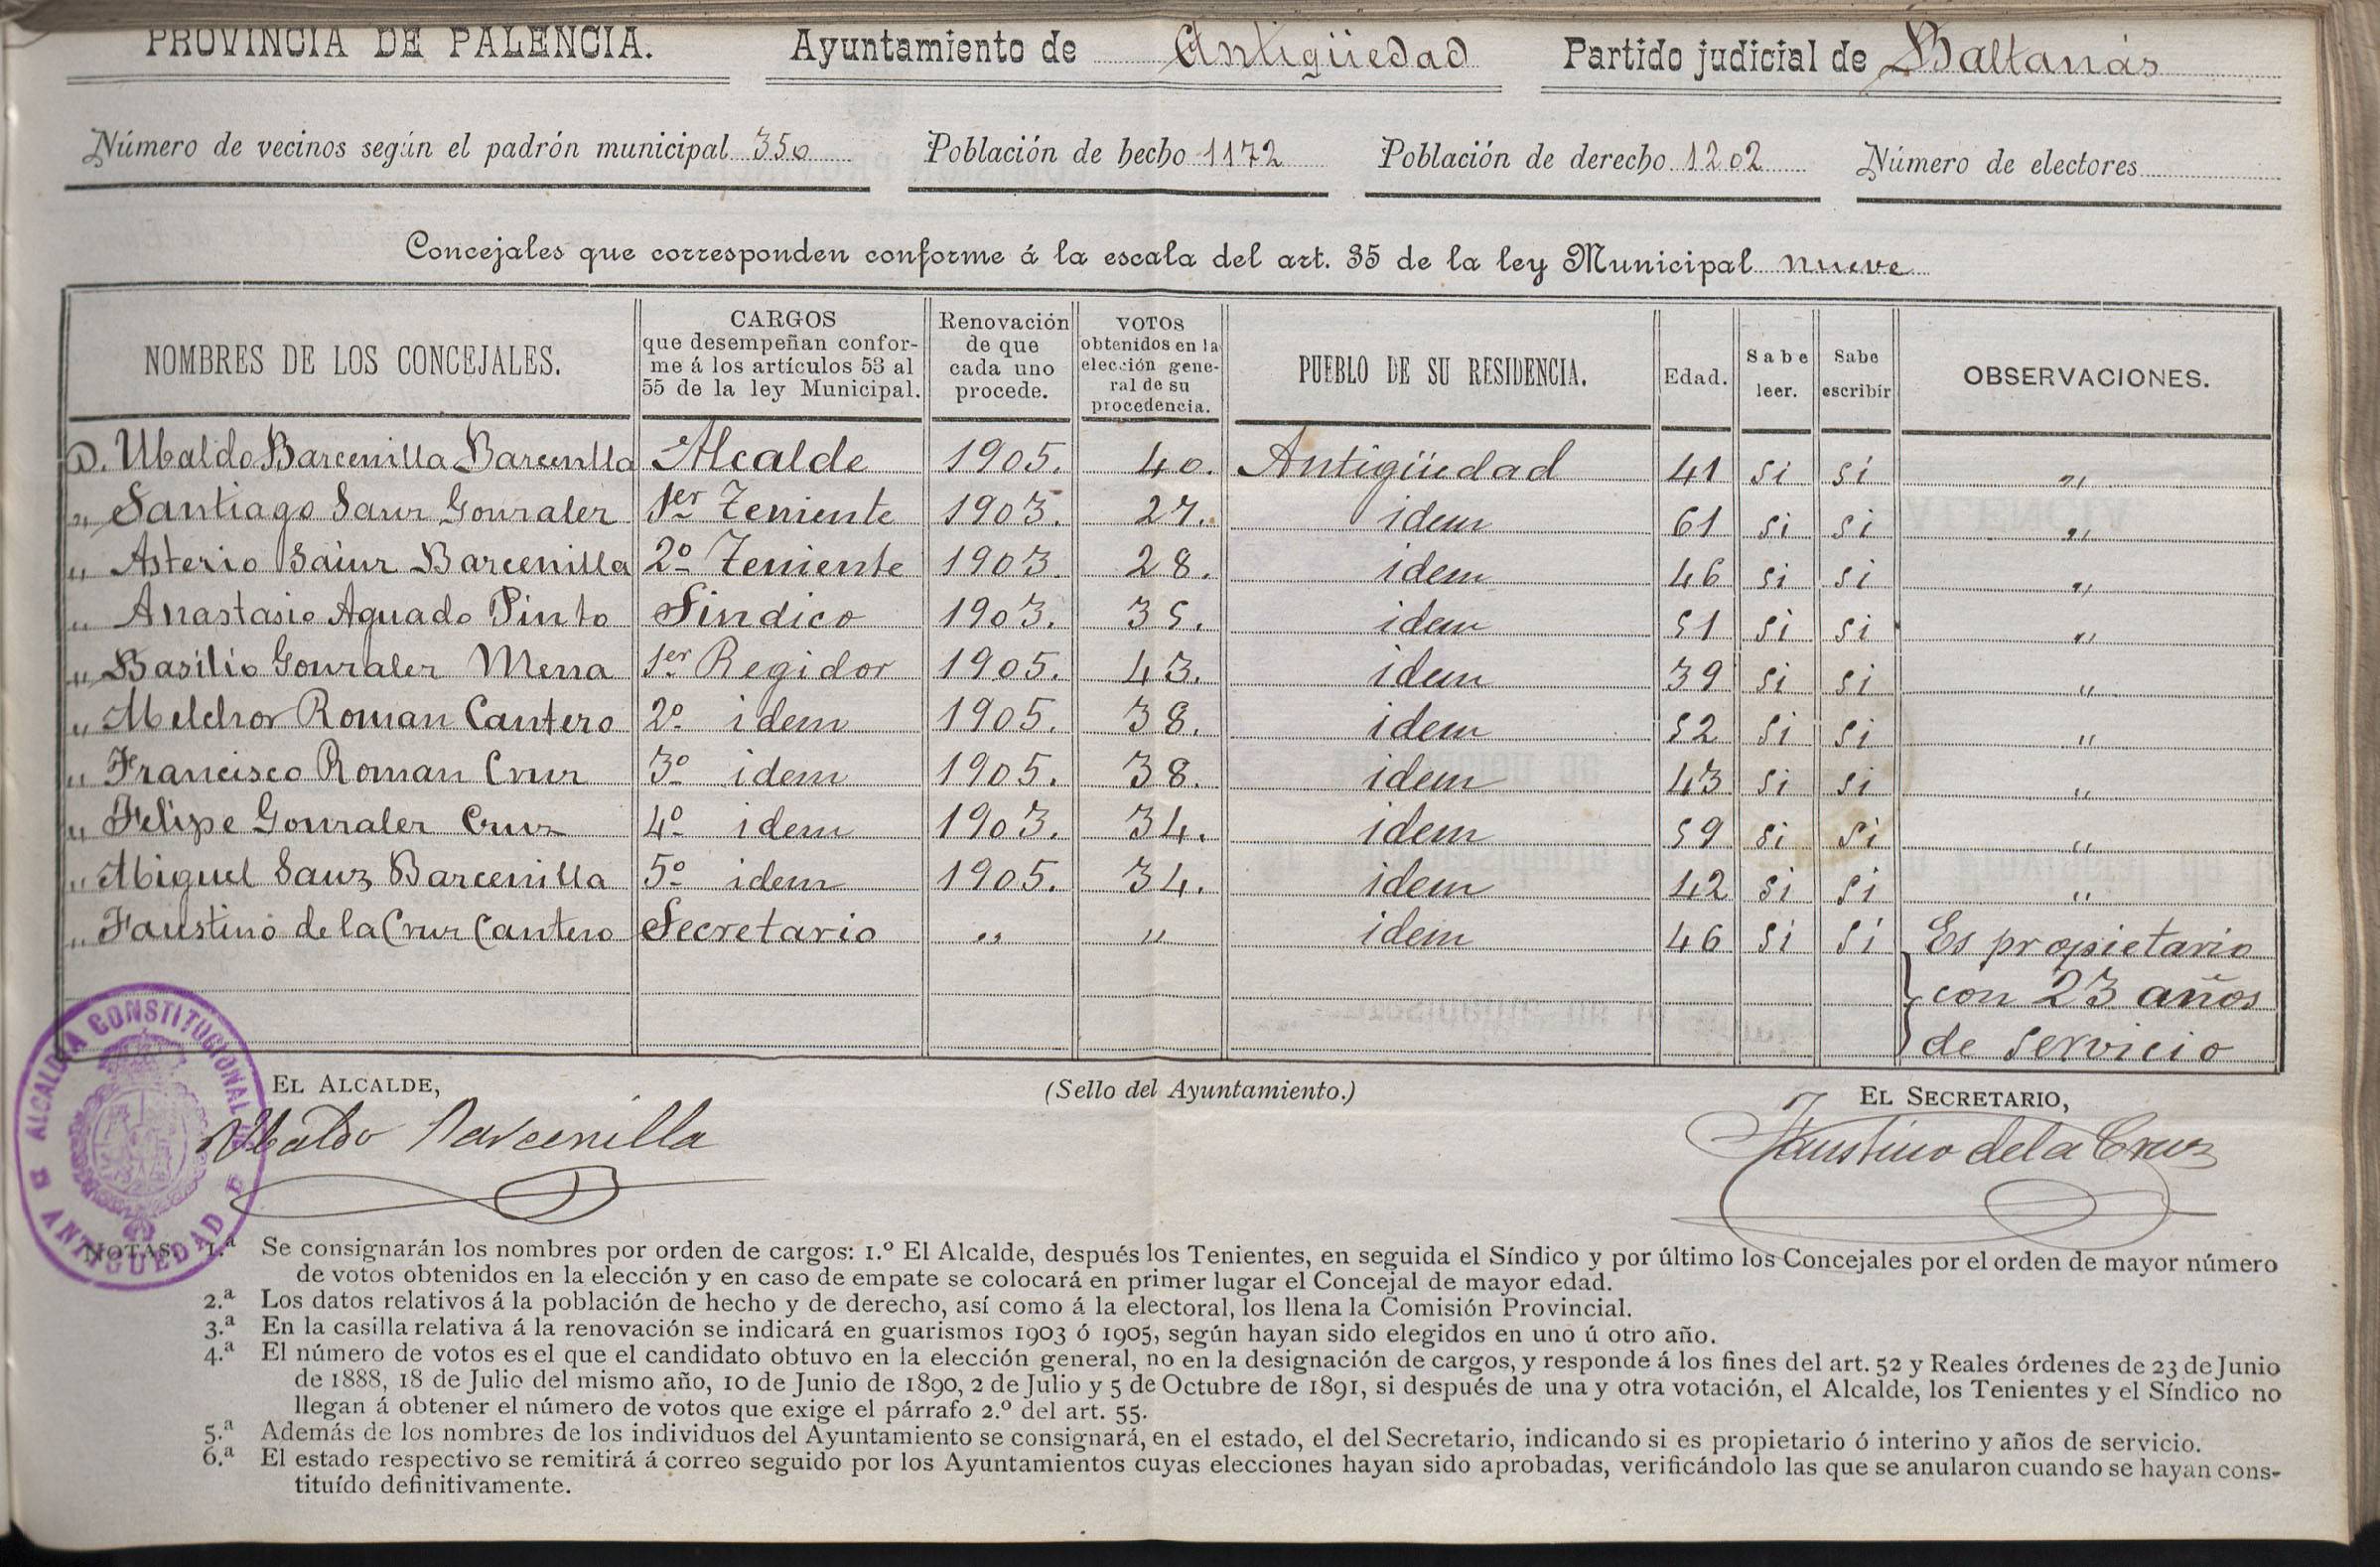 PROVINCIA DE PALENCIA. Ayuntamiento de Antigüedad Partido judicial de Baltanás
Número de vecinos según el padrón municipal 350 Población de hecho 1172 Población de derecho 1202 Número de electores
Concejales que corresponden conforme á la escala del art. 35 de la ley Municipal nueve
NOMBRES DE LOS CONCEJALES. CARGOS que desempeñan conforme á los artículos 53 al 55 de la ley Municipal. Renovación de que cada uno procede. VOTOS obtenidos en la elección general de su procedencia. PUEBLO DE SU RESIDENCIA. Edad. Sabe leer. Sabe escribir OBSERVACIONES.
D. Ubaldo Barcenilla Barcenilla Alcalde 1905. 40. Antigüedad 41 si si "
" Santiago Sanz Gonzalez 1er Teniente 1903. 27. idem 61 si si "
" Asterio Sainz Barcenilla 2º Teniente 1903 28. idem 46 si si "
" Anastasio Aguado Pinto Sindico 1903. 35. idem 51 si si "
" Basilio Gonzalez Mena 1er Regidor 1905. 43. idem 39 si si "
" Melchor Roman Cantero 2º idem 1905. 38. idem 52 si si "
" Francisco Roman Cruz 3º idem 1905. 38. idem 43 si si "
" Felipe Gonzalez Cruz 4º idem 1903. 34. idem 59 si si "
" Miguel Sanz Barcenilla 5º idem 1905. 34. idem 42 si si "
" Faustino de la Cruz Cantero Secretario " " idem 46 si si Es propietario
con 23 años
de servicio
ALCALDIA CONSTITUCIONAL DE ANTIGUEDAD
EL ALCALDE, (Sello del Ayuntamiento.) EL SECRETARIO,
Ubaldo Barcenilla Faustino de la Cruz
NOTAS. 1.ª Se consignarán los nombres por orden de cargos: 1.º El Alcalde, después los Tenientes, en seguida el Síndico y por último los Concejales por el orden de mayor número
de votos obtenidos en la elección y en caso de empate se colocará en primer lugar el Concejal de mayor edad.
2.ª Los datos relativos á la población de hecho y de derecho, así como á la electoral, los llena la Comisión Provincial.
3.ª En la casilla relativa á la renovación se indicará en guarismos 1903 ó 1905, según hayan sido elegidos en uno ú otro año.
4.ª El número de votos es el que el candidato obtuvo en la elección general, no en la designación de cargos, y responde á los fines del art. 52 y Reales órdenes de 23 de Junio
de 1888, 18 de Julio del mismo año, 10 de Junio de 1890, 2 de Julio y 5 de Octubre de 1891, si después de una y otra votación, el Alcalde, los Tenientes y el Síndico no
llegan á obtener el número de votos que exige el párrafo 2.º del art. 55.
5.ª Además de los nombres de los individuos del Ayuntamiento se consignará, en el estado, el del Secretario, indicando si es propietario ó interino y años de servicio.
6.ª El estado respectivo se remitirá á correo seguido por los Ayuntamientos cuyas elecciones hayan sido aprobadas, verificándolo las que se anularon cuando se hayan cons-
tituído definitivamente.